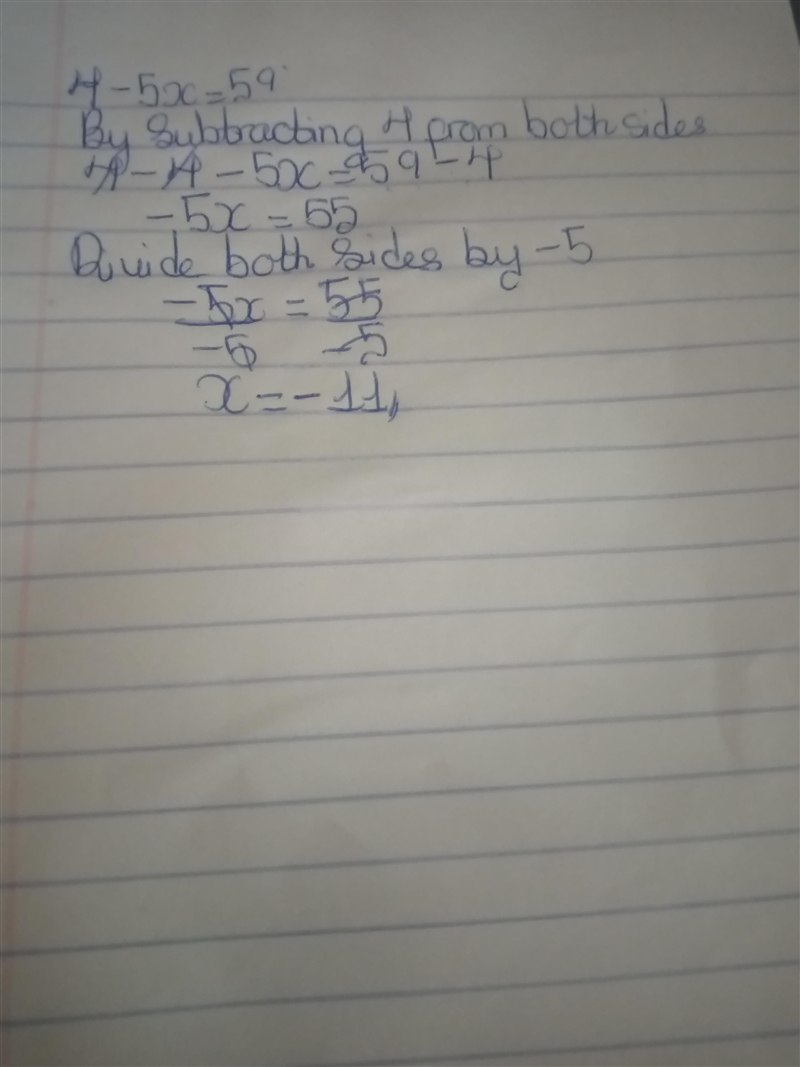 4 - 5x = 59
By Subtracting 4 from both sides
4 - 4 - 5x = 59 - 4
- 5x = 55
Divide both Sides by - 5
- 5x = 55
- 5 - 5
x = - 11,